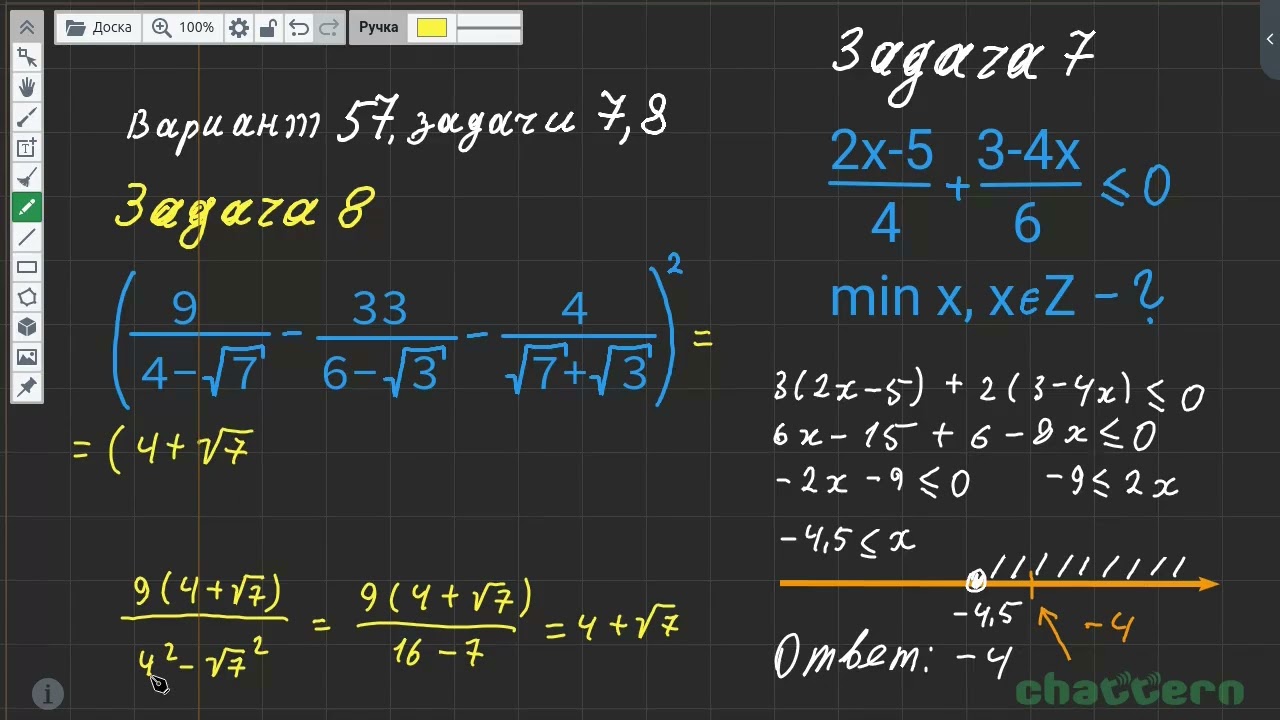 Доска 100% Ручка
Вариант 57, задачи 7,8
Задача 8
(9/(4-√7) - 33/(6-√3) - 4/(√7+√3))² =
= (4+√7
9(4+√7)/(4²-√7²) = 9(4+√7)/(16-7) = 4+√7
Задача 7
(2x-5)/4 + (3-4x)/6 ≤ 0
min x, x∈Z - ?
3(2x-5) + 2(3-4x) ≤ 0
6x - 15 + 6 - 8x ≤ 0
-2x - 9 ≤ 0 -9 ≤ 2x
-4,5 ≤ x
-4,5 -4
Ответ: -4
chattern